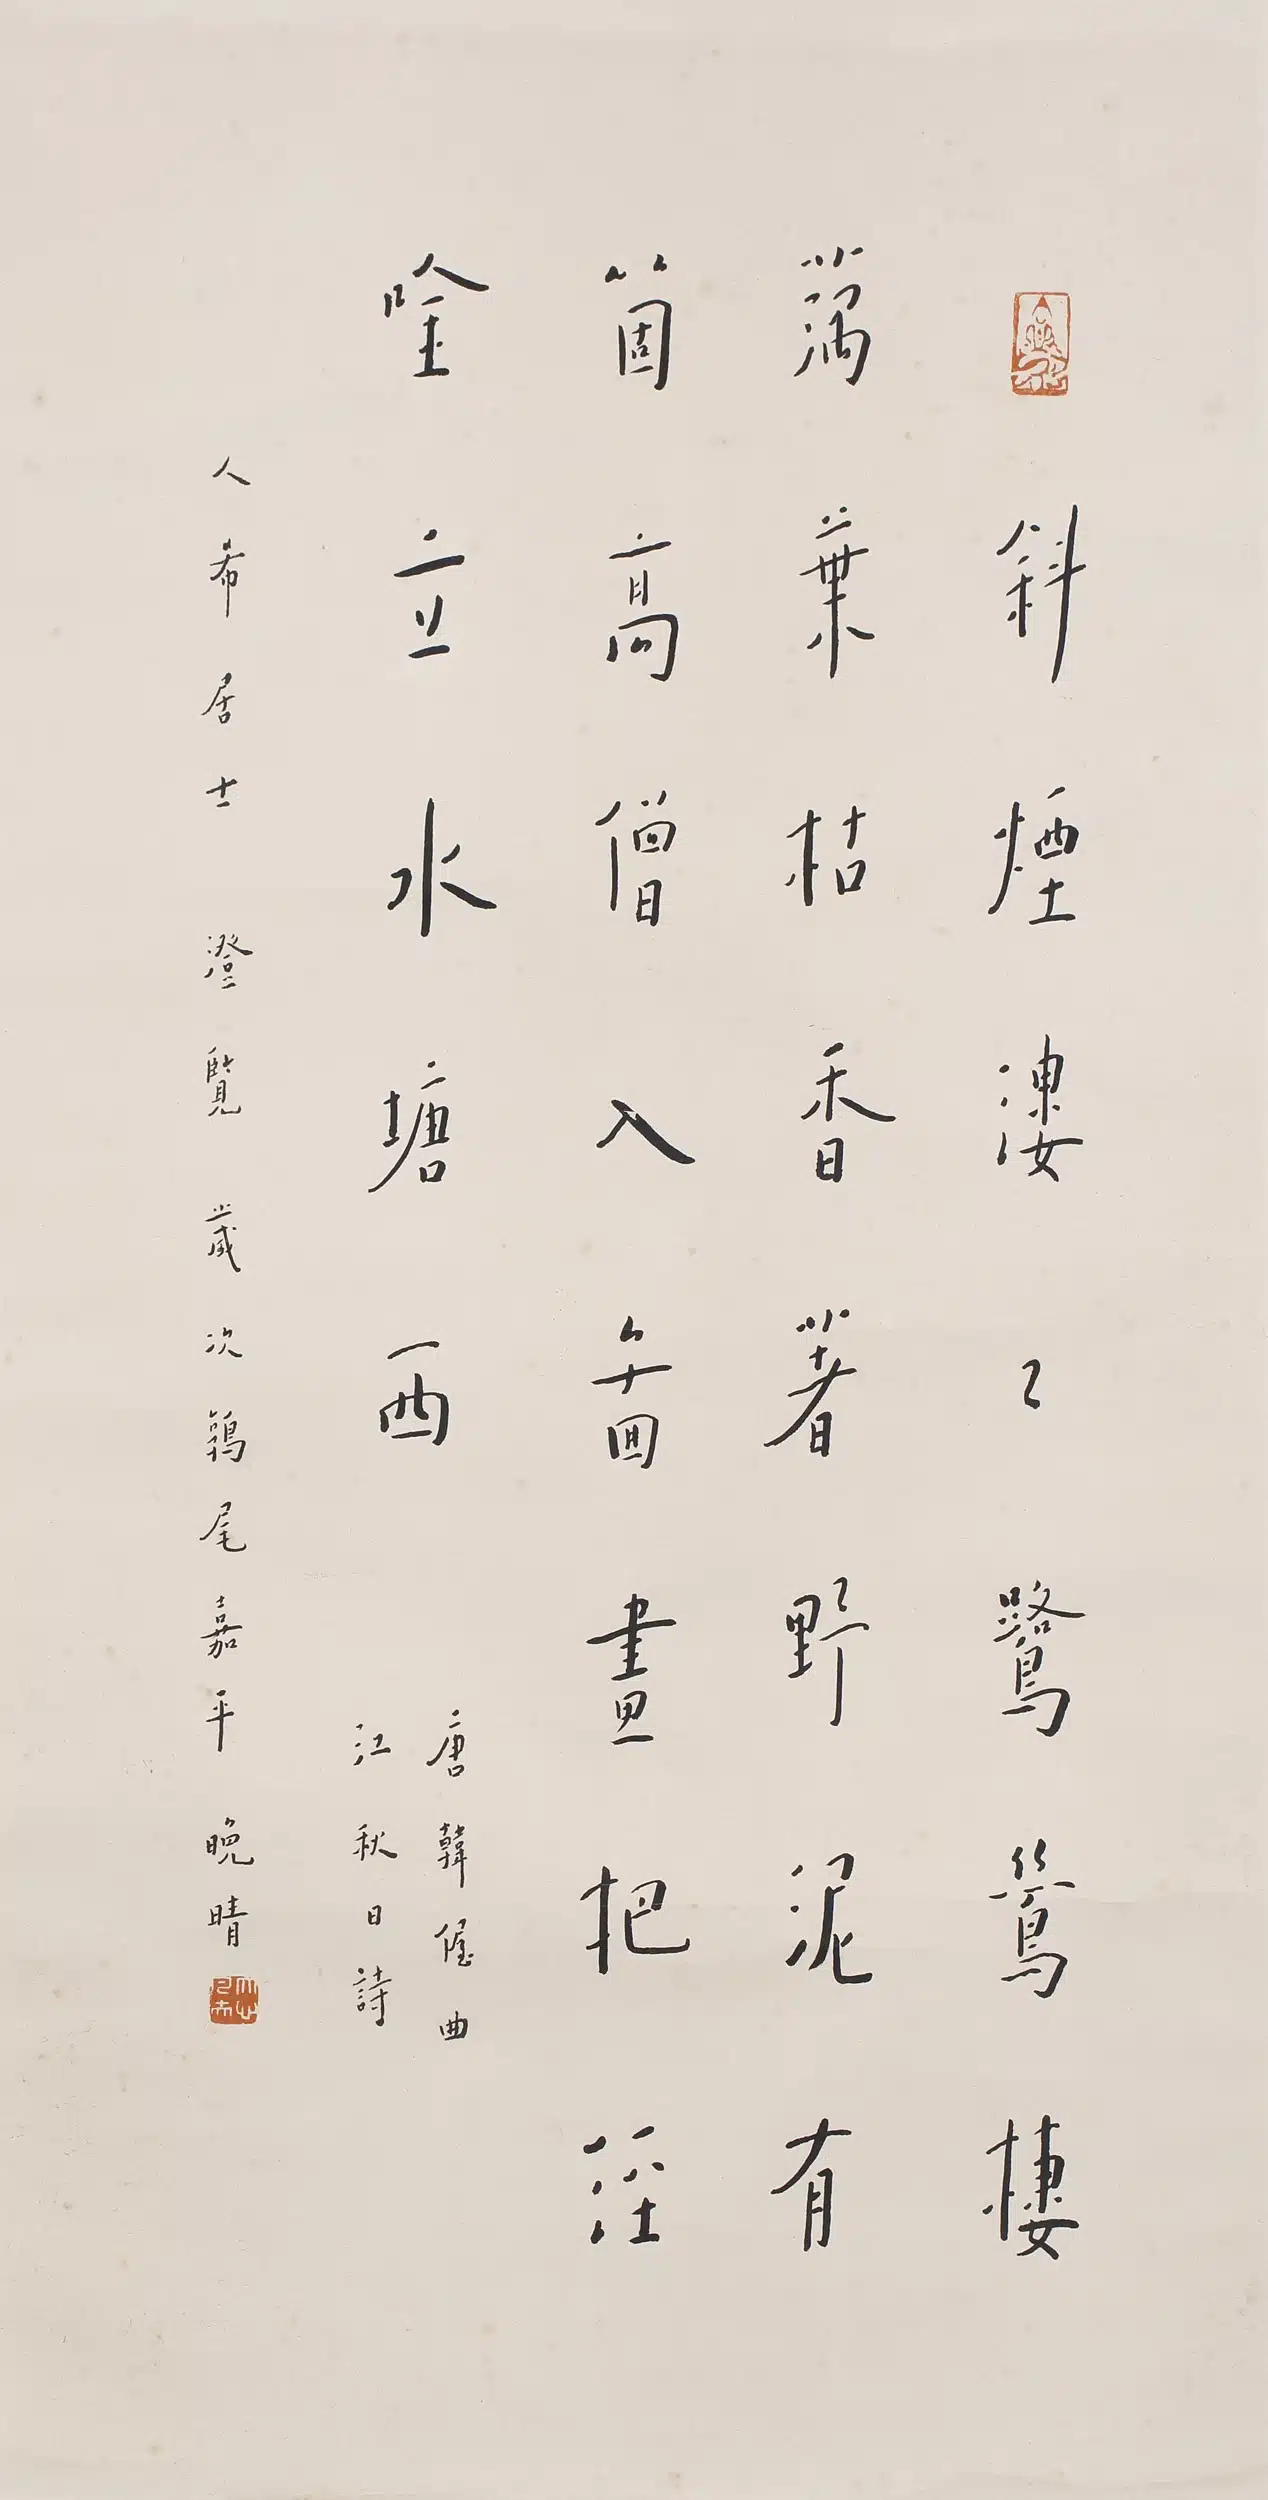 斜煙淒〻鷺鷥棲
藕葉枯香著野泥有
箇高僧入啚畫把經
唫立水塘西
唐韓偓曲
江秋日詩
人希居士 澄覽 歲次鶉尾嘉平 晚晴